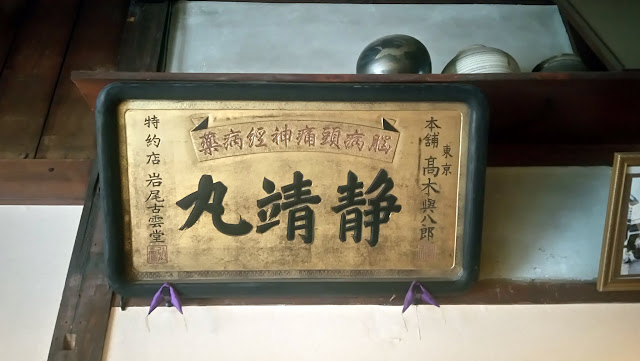 腦病頭痛神經病藥
東京
本舗 髙木與八郎
静靖丸
特約店 岩尾古雲堂